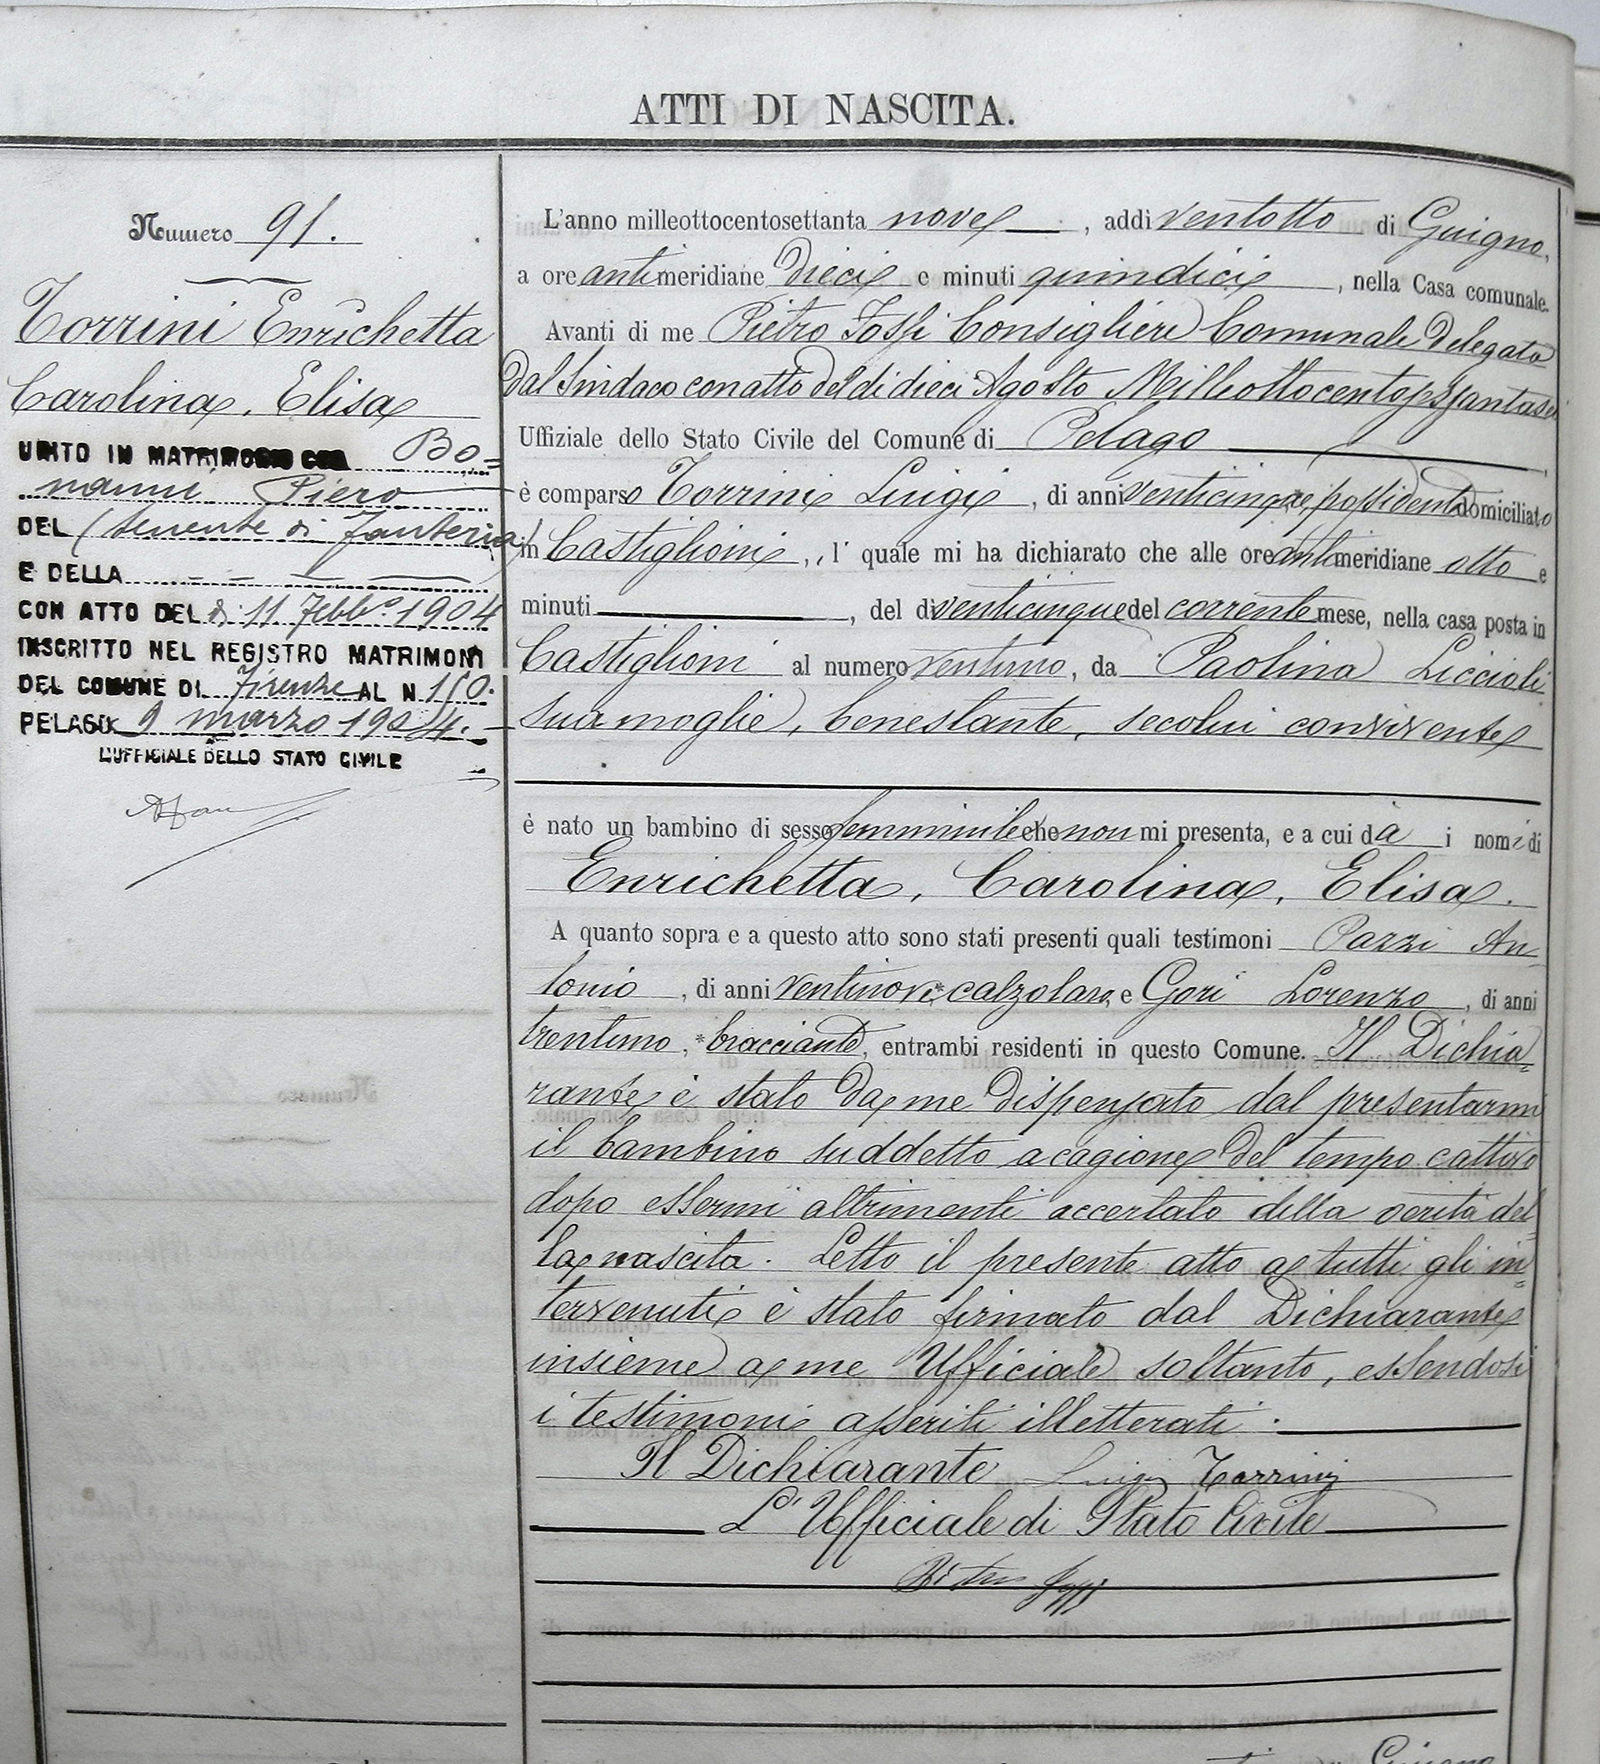 ATTI DI NASCITA.
Numero 91.
Torrini Enrichetta
Carolina, Elisa
UNITO IN MATRIMONIO CON Bo=
nanni Piero
DEL (tenente di fanteria)
E DELLA
CON ATTO DEL dì 11 Febbo 1904
INSCRITTO NEL REGISTRO MATRIMONI
DEL COMUNE DI Firenze AL N. 150.
PELAGO 9 marzo 1904.
L'UFFICIALE DELLO STATO CIVILE
L'anno milleottocentosettanta nove, addì ventotto di Giugno,
a ore antimeridiane dieci e minuti quindici, nella Casa comunale.
Avanti di me Pietro Fossi Consigliere Comunale Delegato
dal Sindaco con atto del dì dieci Agosto Milleottocento
Uffiziale dello Stato Civile del Comune di Pelago
è comparso Torrini Luigi, di anni venticinque, possidente domiciliato
in Castiglioni, l' quale mi ha dichiarato che alle ore antimeridiane otto e
minuti, del dì venticinque del corrente mese, nella casa posta in
Castiglioni al numero ventuno, da Paolina Liccioli
sua moglie, benestante, secolui convivente
è nato un bambino di sesso femminile che non mi presenta, e a cui dà i nomi di
Enrichetta, Carolina, Elisa.
A quanto sopra e a questo atto sono stati presenti quali testimoni Pazzi An-
tonio, di anni ventinove, calzolaro, e Gori Lorenzo, di anni
trentuno, bracciante, entrambi residenti in questo Comune. Il Dichia=
rante è stato da me dispensato dal presentarmi
il bambino suddetto a cagione del tempo cattivo
dopo essermi altrimenti accertato della verità del
la nascita. Letto il presente atto a tutti gli in=
tervenuti è stato firmato dal Dichiarante
insieme a me Ufficiale soltanto, essendosi
i testimoni asseriti illetterati.
Il Dichiarante Luigi Torrini
L'Ufficiale di Stato Civile
Pietro Fossi
Giugno